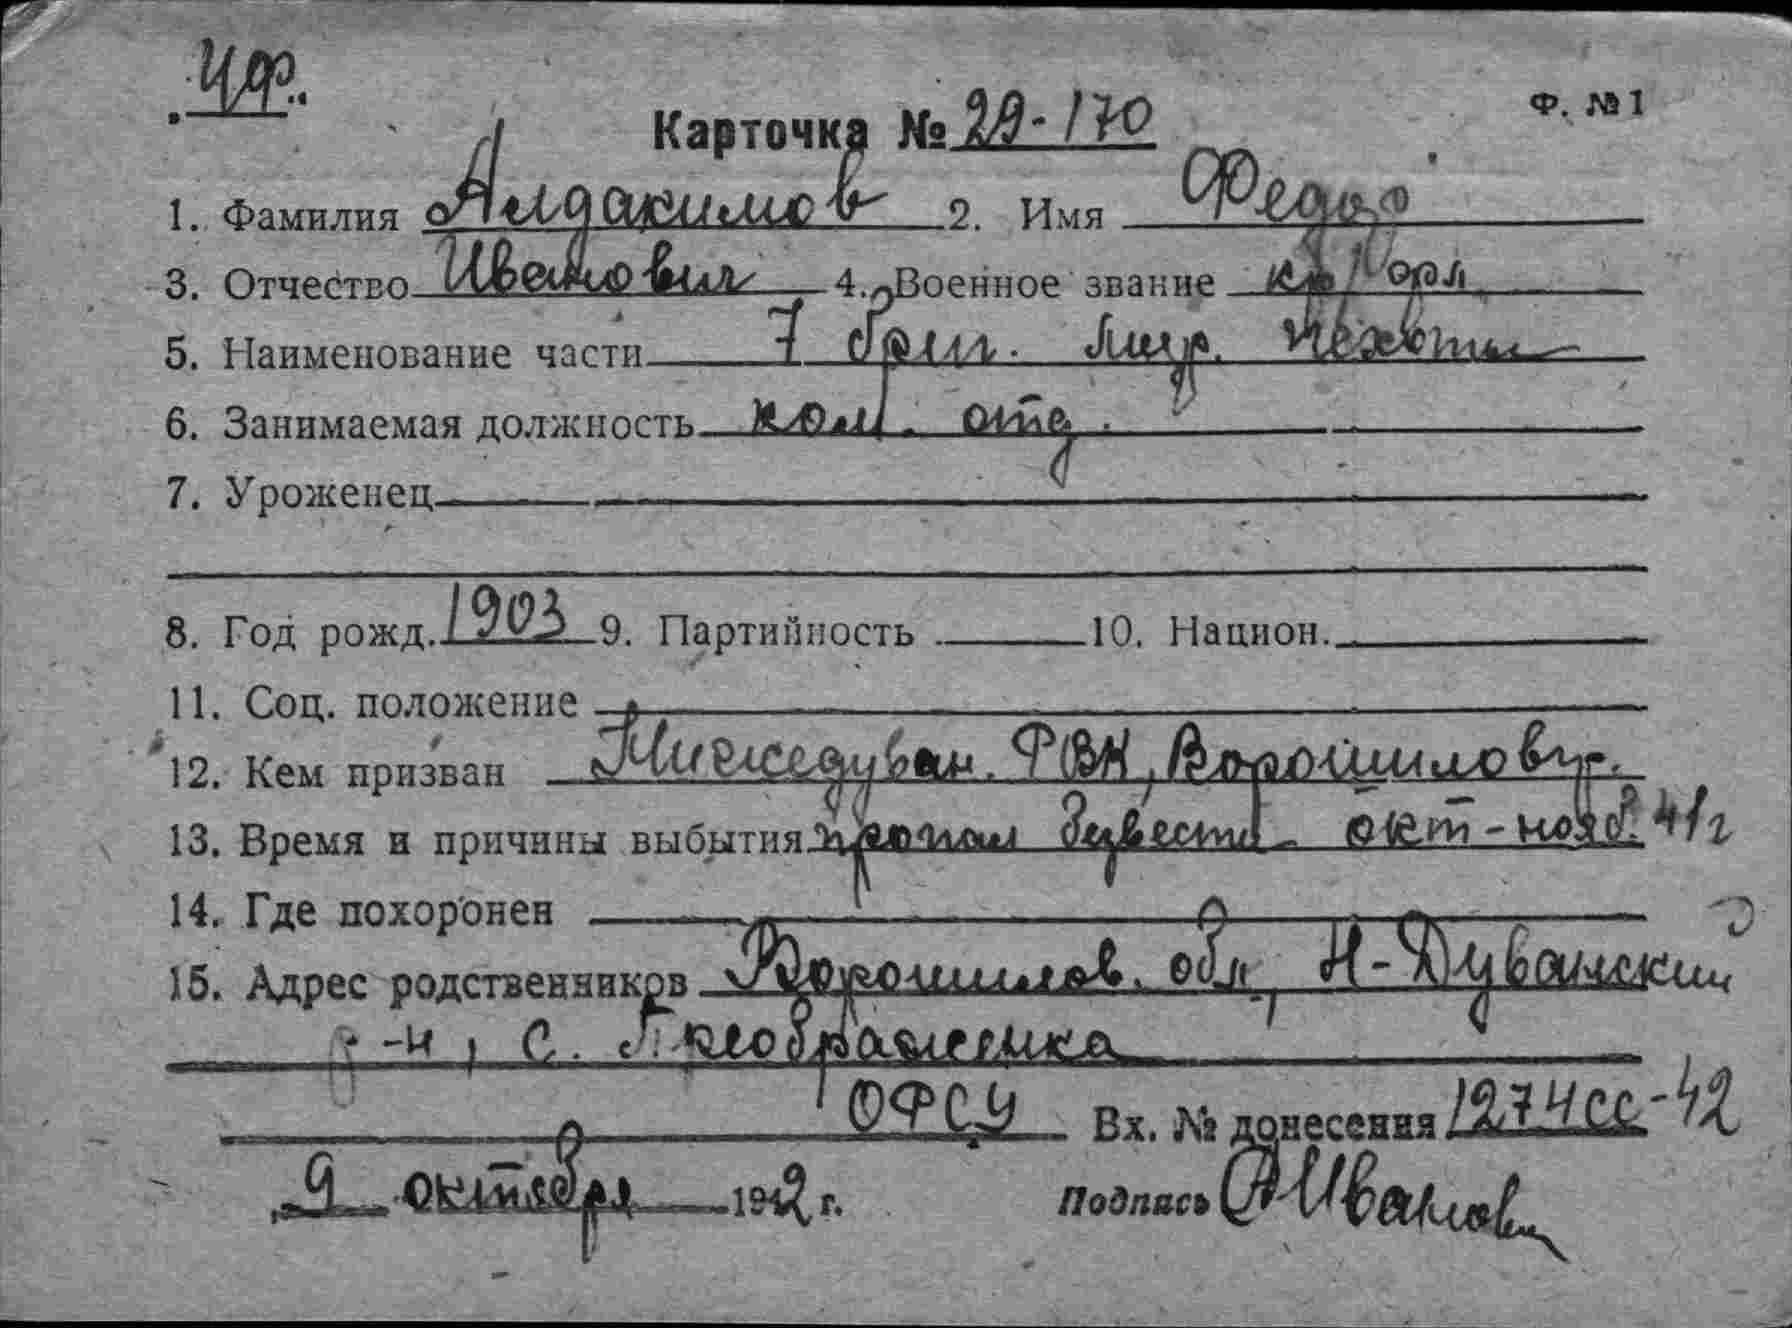 ЦФ.
Карточка № 29-170
Ф. № 1
1. Фамилия Алдакимов 2. Имя Федор
3. Отчество Иванович 4. Военное звание
5. Наименование части 7 бриг. мор. пехоты
6. Занимаемая должность ком. отд.
7. Уроженец
8. Год рожд. 1903 9. Партийность 10. Национ.
11. Соц. положение
12. Кем призван Нижедуван. РВК, Ворошиловгр.
13. Время и причины выбытия пропал безвести окт-нояб. 41 г
14. Где похоронен
15. Адрес родственников Ворошилов. обл, Н-Дуванский
р-н, с. Преображенка
ОФСУ Вх. № донесения 1274сс-42
9 октября 1942 г. Подпись Иванов